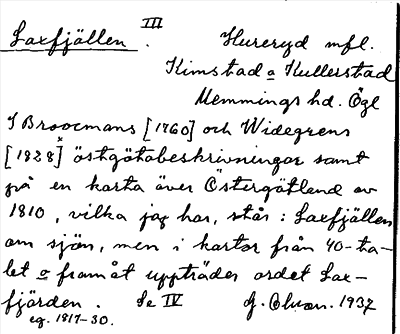 Laxfjällen. III Hureryd mfl.
Kimstad o Kullerstad
Memmings hd. Ögl
I Broocmans [1760] och Widegrens
[1828]ˣ östgötabeskrivningar samt
på en karta över Östergötland av
1810, vilka jag har, står: Laxfjällen
om sjön, men i kartor från 40-ta-
let o framåt uppträder ordet Lax-
fjärden. Se IV 1937
eg. 1817-30.